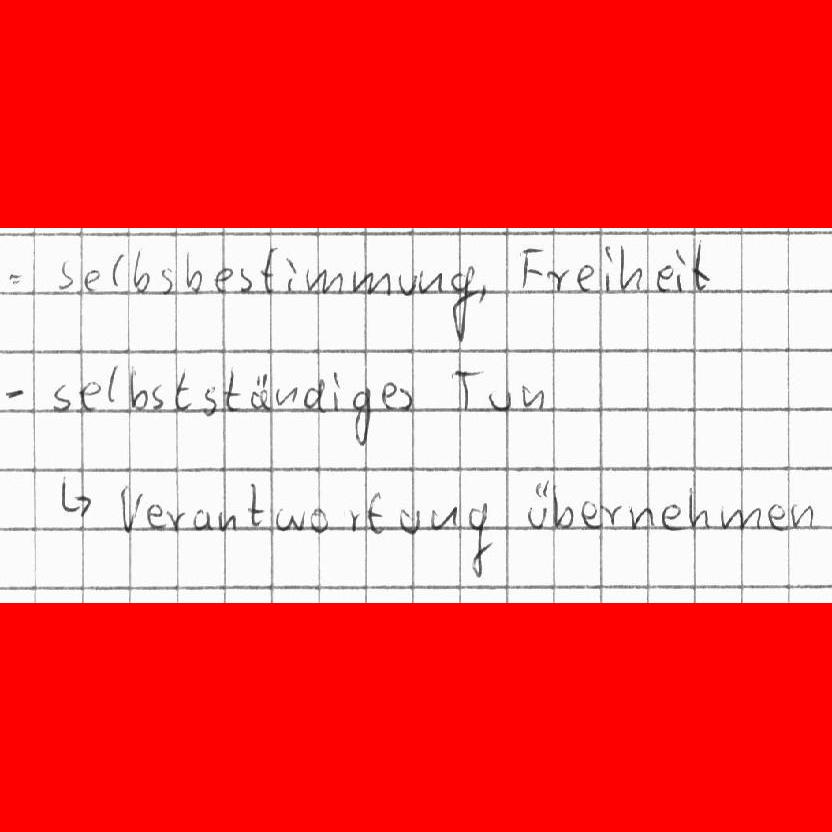 = selbsbestimmung, Freiheit
- selbstständiges Tun
↳ Verantwortung übernehmen